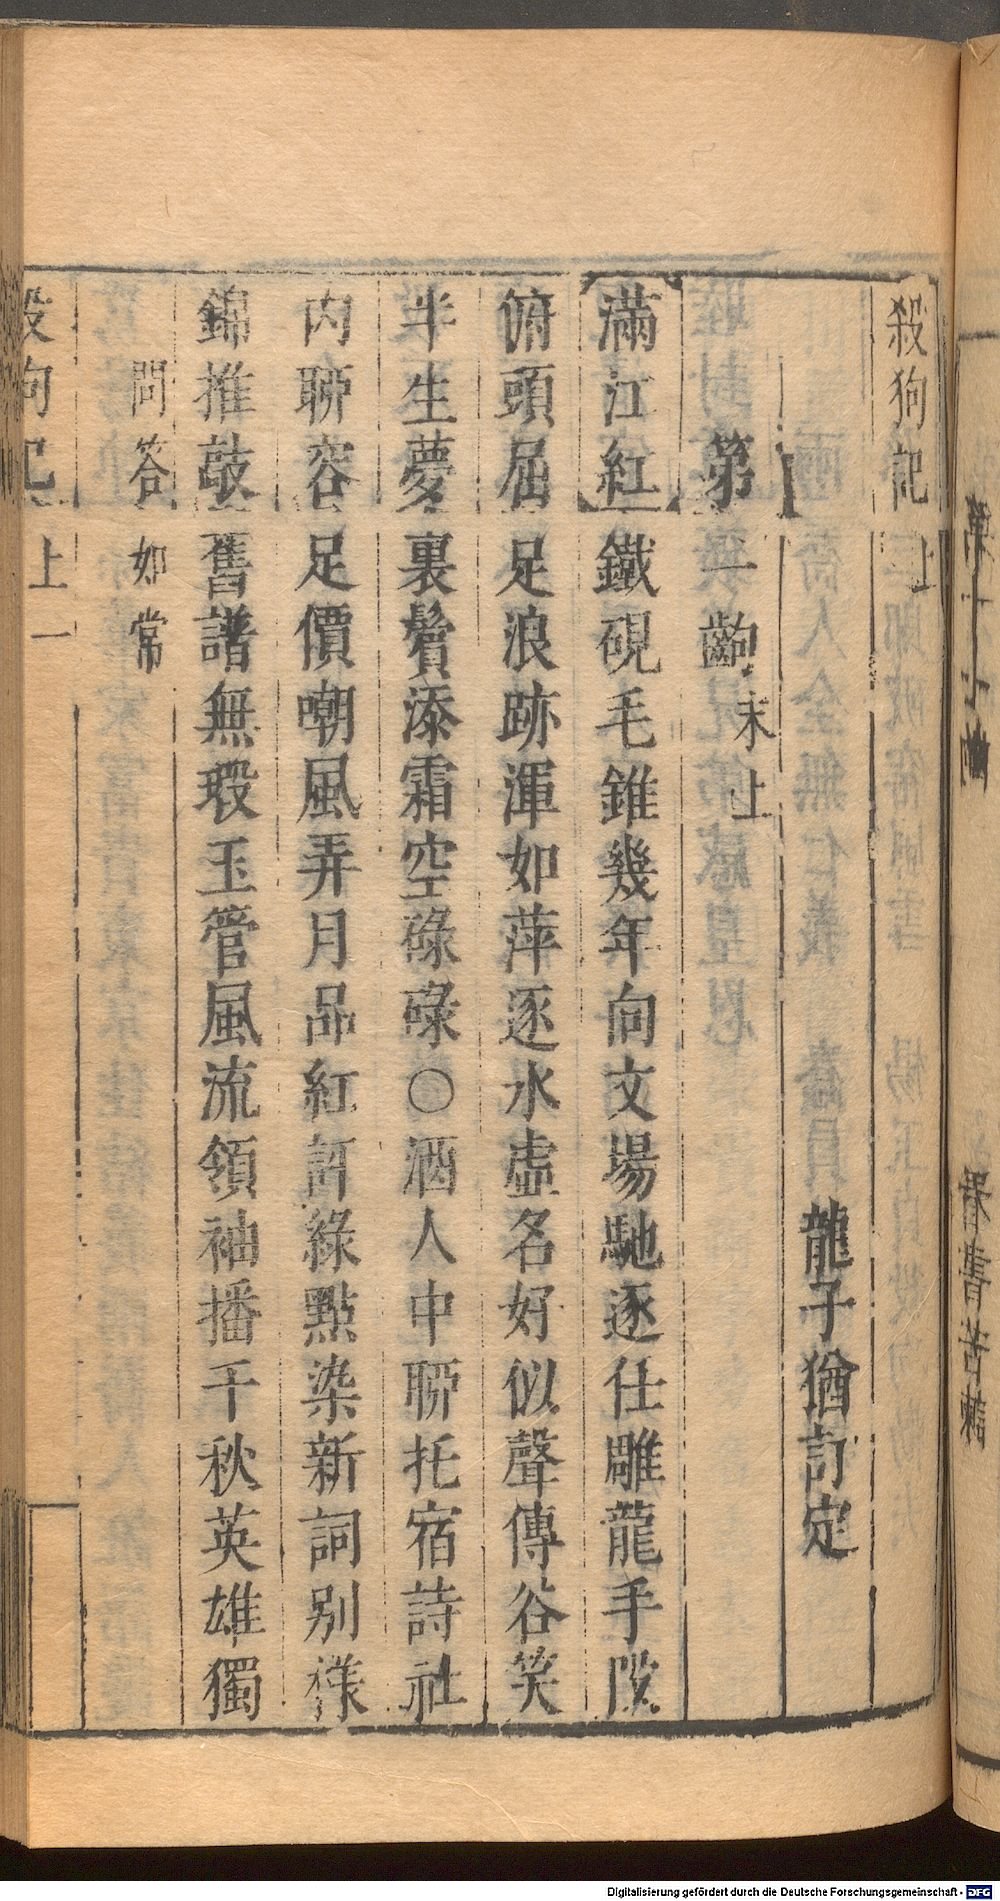 殺狗記上
龍子猶訂定
第一齣末上
滿江紅鐵硯毛錐幾年向文場馳逐仕雕龍手段
俯頭屈足浪跡渾如萍逐水虛名好似聲傳谷笑
半生夢裏鬢添霜空碌碌〇酒人中聊托宿詩社
內聊容足價嘲風弄月品紅評綠點染新詞別樣
錦推敲舊譜無瑕玉管風流領袖播千秋英雄獨
問答如常
殺狗記
上一
Digitalisierung gefördert durch die Deutsche Forschungsgemeinschaft - DFG